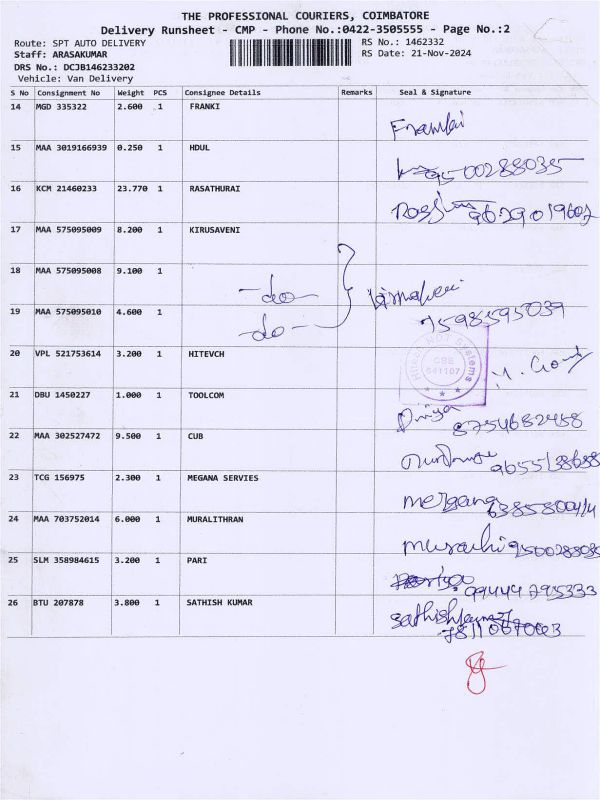 THE PROFESSIONAL COURIERS, COIMBATORE
Delivery Runsheet - CMP - Phone No.:0422-3505555 - Page No.:2
Route: SPT AUTO DELIVERY RS No.: 1462332
Staff: ARASAKUMAR RS Date: 21-Nov-2024
DRS No.: DCJB146233202
Vehicle: Van Delivery
S No Consignment No Weight PCS Consignee Details Remarks Seal & Signature
14 MGD 335322 2.600 1 FRANKI
15 MAA 3019166939 0.250 1 HDUL
9500288035
16 KCM 21460233 23.770 1 RASATHURAI
9629019602
17 MAA 575095009 8.200 1 KIRUSAVENI
18 MAA 575095008 9.100 1
-do-
19 MAA 575095010 4.600 1
-do-
7598595039
20 VPL 521753614 3.200 1 HITEVCH
Hitech DOT Systems
CBE
641107
21 DBU 1450227 1.000 1 TOOLCOM
Divya
8754682458
22 MAA 302527472 9.500 1 CUB
23 TCG 156975 2.300 1 MEGANA SERVIES
24 MAA 703752014 6.000 1 MURALITHRAN
25 SLM 358984615 3.200 1 PARI
99444 795333
26 BTU 207878 3.800 1 SATHISH KUMAR